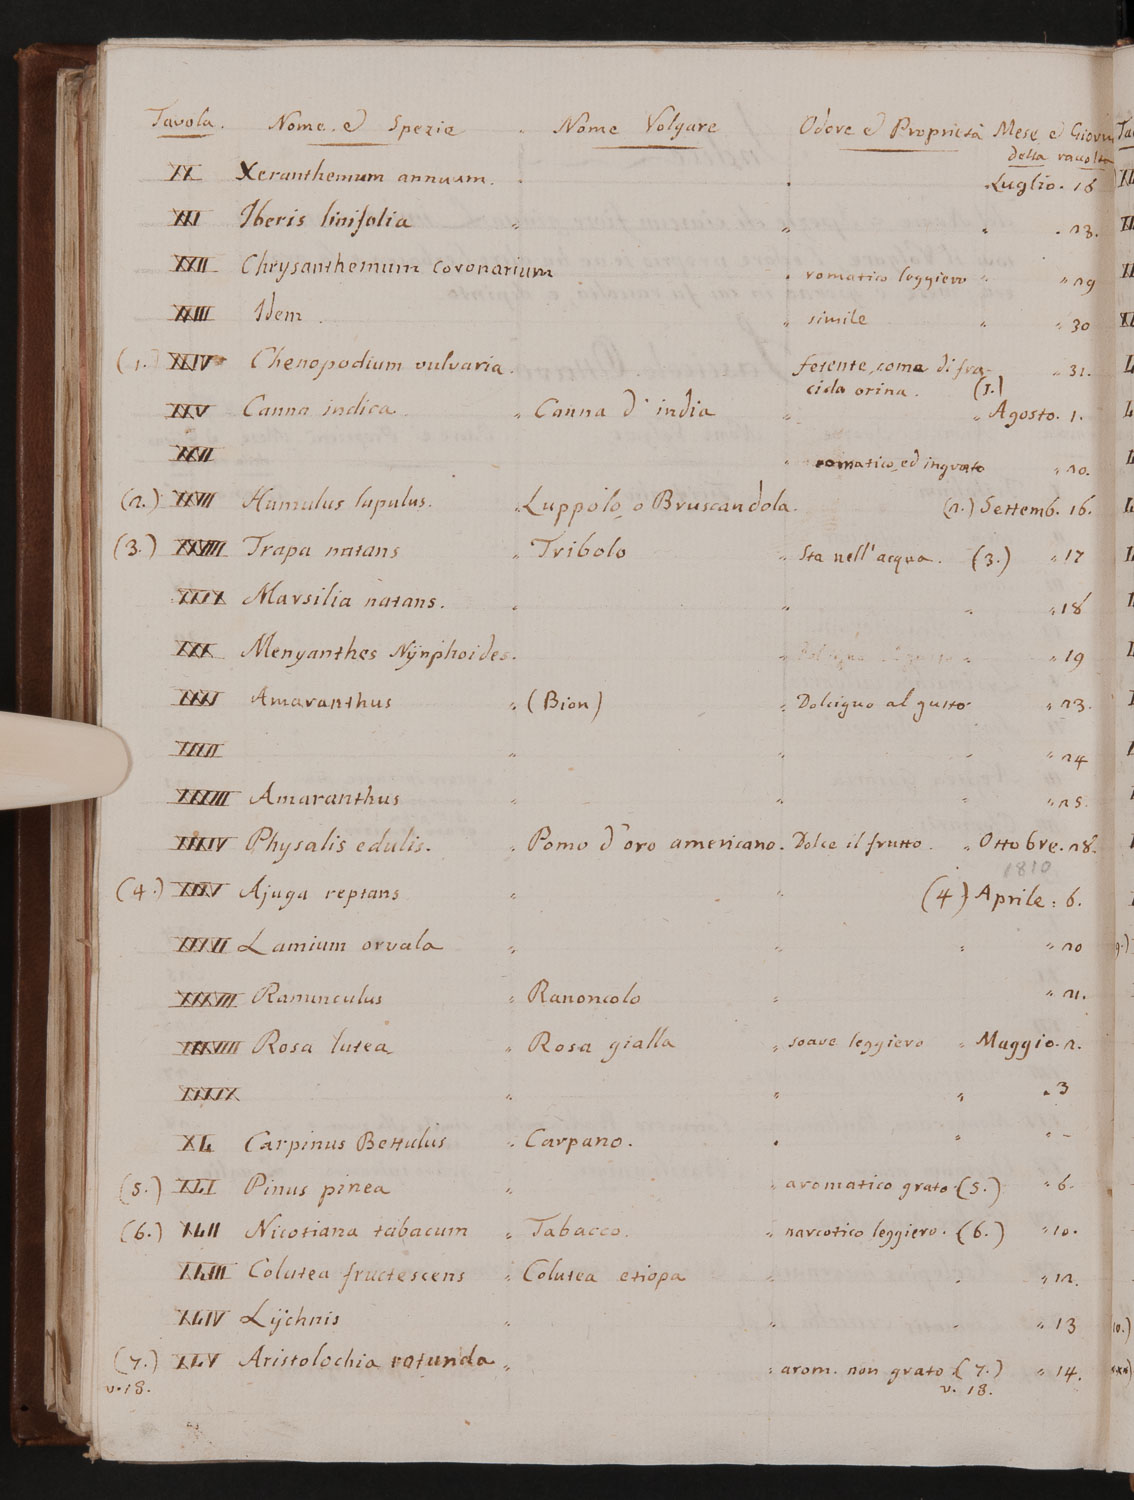 Tavola. Nome e Spezie Nome Volgare Odore e Proprietà Mese e
della
XX Xeranthemum annuum. Luglio. 18
XXI Iberis linifolia " " " . 23.
XXII Chrysanthemum coronarium " romatico leggiero " " 29
XXIII Idem. " simile " " 30
(1.) XXIV Chenopodium vulvaria. fetente come di fra- " 31.
cida orina. (1.)
XXV Canna indica " Canna d'india " " Agosto. 1.
XXVI " romatico, ed ingrato " 20.
(2.) XXVII Humulus lupulus. " Luppolo o Bruscandola. (2.) Settemb. 16.
(3.) XXVIII Trapa natans " Tribolo " Sta nell'acqua. (3.) " 17
XXIX Marsilia natans. " " " " 18
XXX Menyanthes Nÿnphoides. " " " 19
XXXI Amaranthus " (Bion) " Dolcigno al gusto " 23.
XXXII " " " " 24
XXXIII Amaranthus " " " " 25.
XXXIV Physalis edulis. " Pomo d'oro americano. Dolce il frutto. " Ottobre. 28.
1810
(4.) XXXV Ajuga reptans " " (4) Aprile : 6.
XXXVI Lamium orvala " " " " 20
XXXVII Ranunculus " Ranoncolo " " 21.
XXXVIII Rosa lutea " Rosa gialla " soave leggiero " Maggio. 2.
XXXIX " " " " 3
XL Carpinus Bettulus " Carpano. " " " -
(5.) XLI Pinus pinea " " aromatico grato (5.) " 6.
(6.) XLII Nicotiana tabacum " Tabacco. " narcotico leggiero. (6.) " 10.
XLIII Colutea fructescens " Colutea etiopa " " " 12.
XLIV Lÿchnis " " " " 13
(7.) XLV Aristolochia rotunda " " arom. non grato (7.) " 14.
v. 18. v. 18.